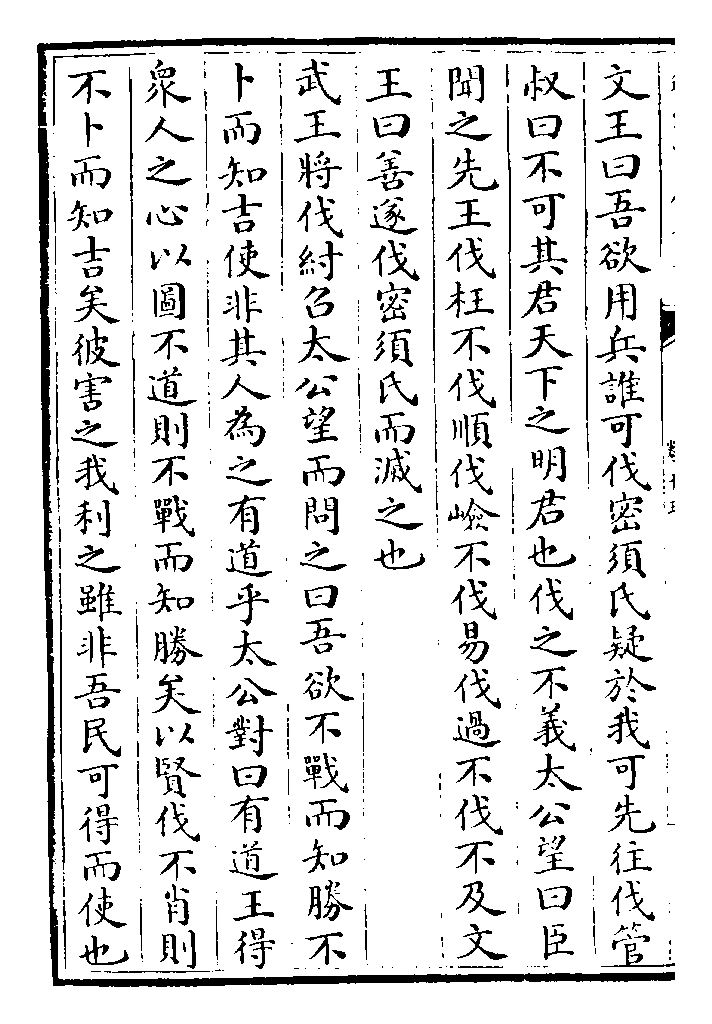 文王曰吾欲用兵誰可伐密須氏疑於我可先往伐管
叔曰不可其君天下之明君也伐之不義太公望曰臣
聞之先王伐枉不伐順伐嶮不伐易伐過不伐不及文
王曰善遂伐密須氏而滅之也
武王將伐紂召太公望而問之曰吾欲不戰而知勝不
卜而知吉使非其人為之有道乎太公對曰有道王得
衆人之心以圖不道則不戰而知勝矣以賢伐不肖則
不卜而知吉矣彼害之我利之雖非吾民可得而使也